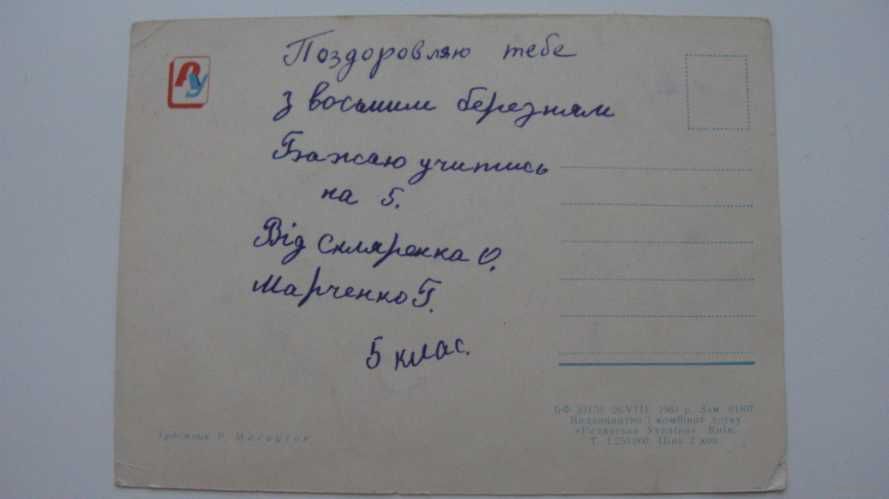 РУ
Поздоровляю тебе
з восьмим березням
Бажаю учитись
на 5.
Від Скляренка О.
Марченко Г.
5 клас.
Художник Р.
БФ 1963 р. Зам.
Видавництво і комбінат друку
«Радянська Україна» Київ.
Т. 1.250.000. Ціна 2 коп.